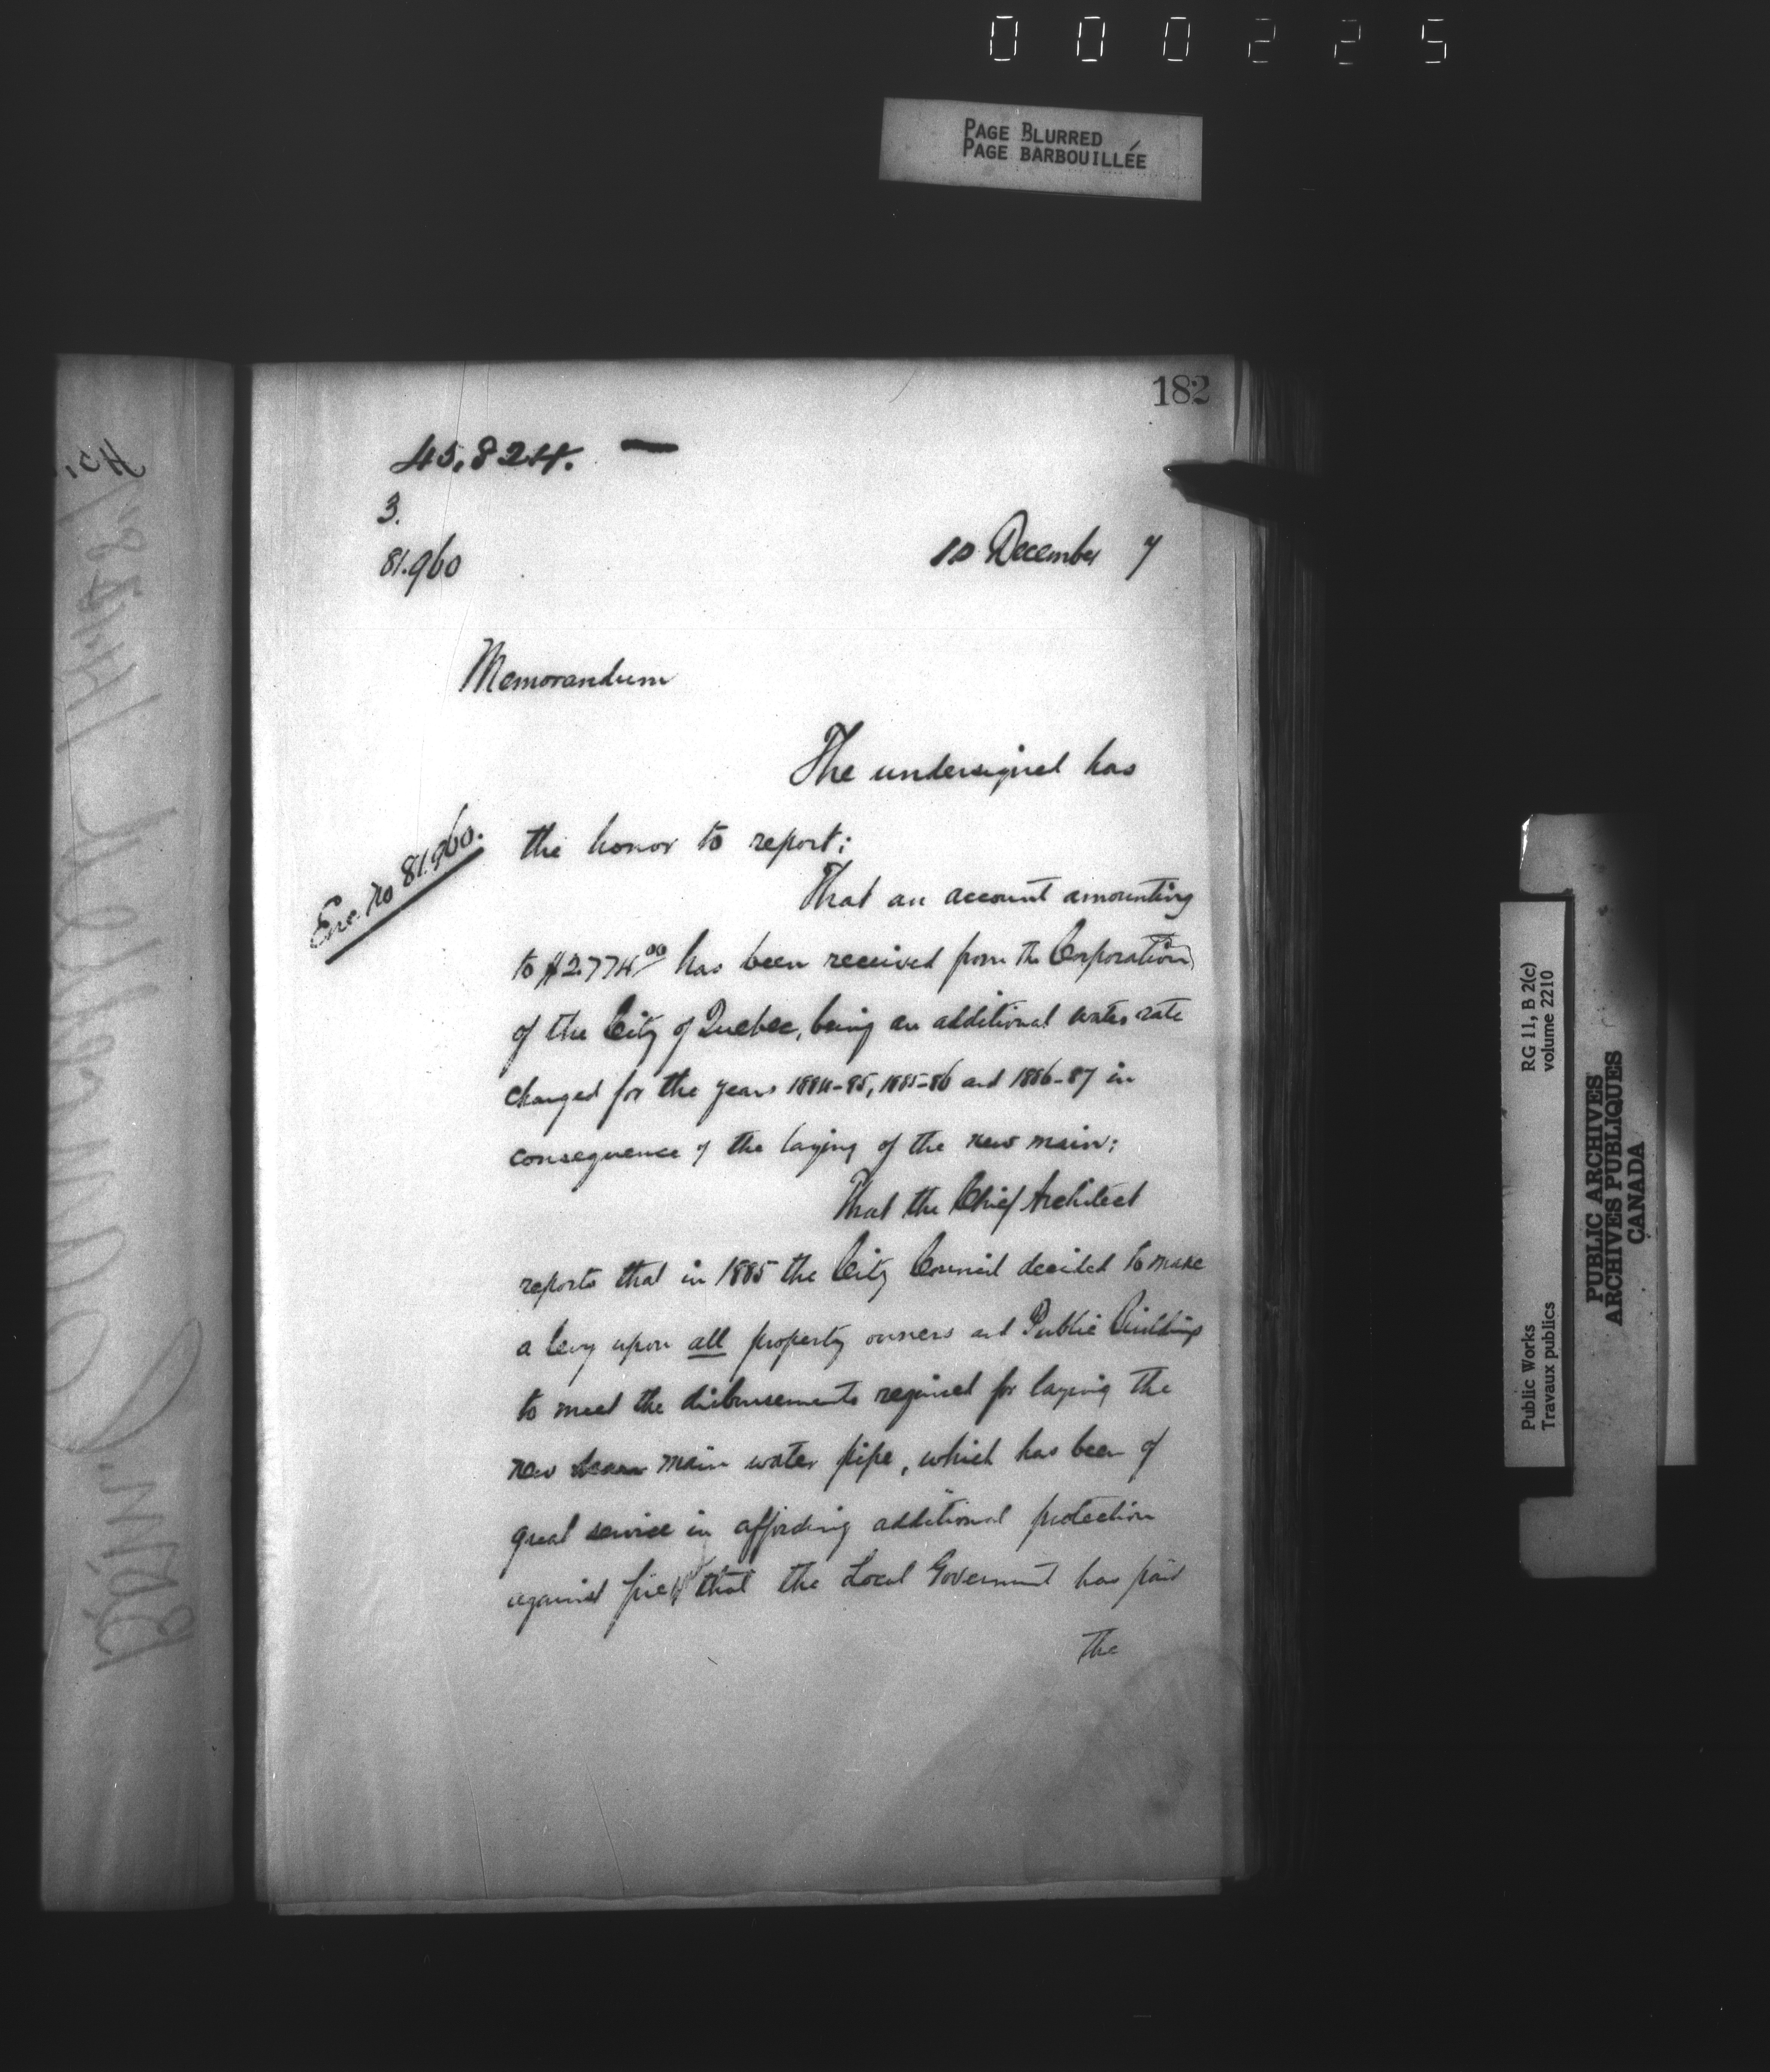 000225
PAGE BLURRED
PAGE BARBOUILLÉE
182
45,824. —
3.
81.960
10 December 7
Memorandum
The undersigned has
Enc. No 81.960.
the honor to report;
That an account amounting
to $2.774.00 has been received from the Corporation
of the City of Quebec, being an additional water rate
charged for the years 1884-85, 1885-86 and 1886-87 in
consequence of the laying of the new main;
That the Chief Architect
reports that in 1885 the City Council decided to make
a levy upon all property owners and Public Buildings
to meet the disbursements required for laying the
new main water pipe, which has been of
great service in affording additional protection
against fire that the Local Government has paid
the
RG 11, B 2(c)
volume 2210
Public Works
Travaux publics
PUBLIC ARCHIVES
ARCHIVES PUBLIQUES
CANADA